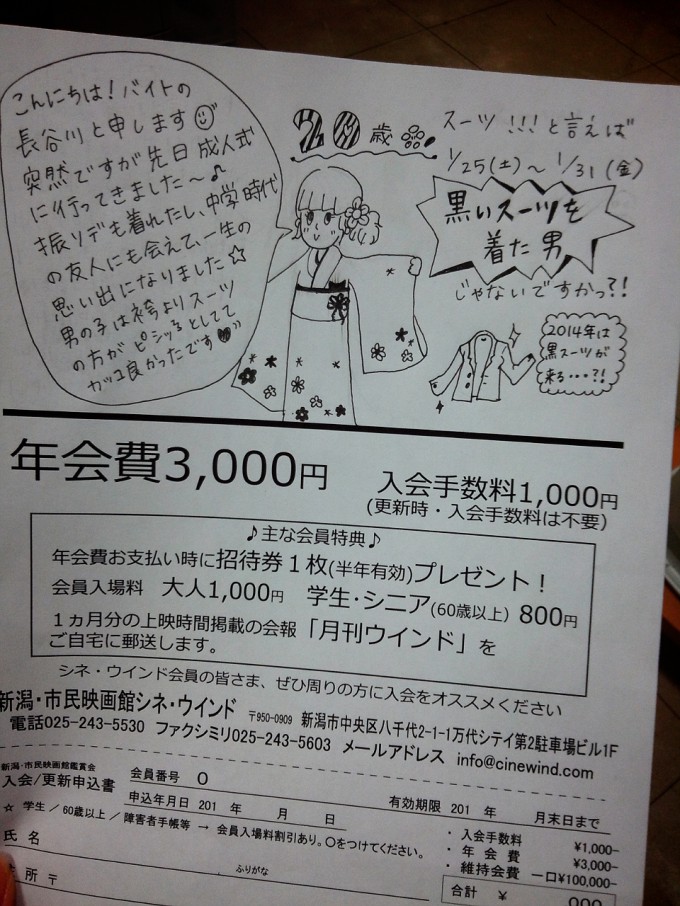 こんにちは！バイトの
長谷川と申します
突然ですが先日成人式
に行ってきました〜♪
振りソデも着れたし、中学時代
の友人にも会えて、一生の
思い出になりました☆
男の子は袴よりスーツ
の方がピシッとしてて
カッコ良かったです♥
20歳
スーツ!!!と言えば
1/25(土)〜1/31(金)
黒いスーツを
着た男
じゃないですかっ?!
2014年は
黒スーツが
来る・・・?!
年会費3,000円
入会手数料1,000円
(更新時・入会手数料は不要)
♪主な会員特典♪
年会費お支払い時に招待券１枚(半年有効)プレゼント！
会員入場料 大人1,000円 学生・シニア(60歳以上) 800円
１ヵ月分の上映時間掲載の会報「月刊ウインド」を
ご自宅に郵送します。
シネ・ウインド会員の皆さま、ぜひ周りの方に入会をオススメください
新潟・市民映画館シネ・ウインド 〒950-0909 新潟市中央区八千代2-1-1万代シテイ第2駐車場ビル1F
電話025-243-5530 ファクシミリ025-243-5603 メールアドレス info@cinewind.com
新潟・市民映画館鑑賞会
入会/更新申込書
会員番号 ０
申込年月日 201 年 月 日
有効期限 201 年 月末日まで
☆ 学生 / 60歳以上 / 障害者手帳等 → 会員入場料割引あり。○をつけてください。
・入会手数料 ¥1,000-
・年会費 ¥3,000-
・維持会費 一口¥100,000-
合計 ¥
氏名
ふりがな
住所〒